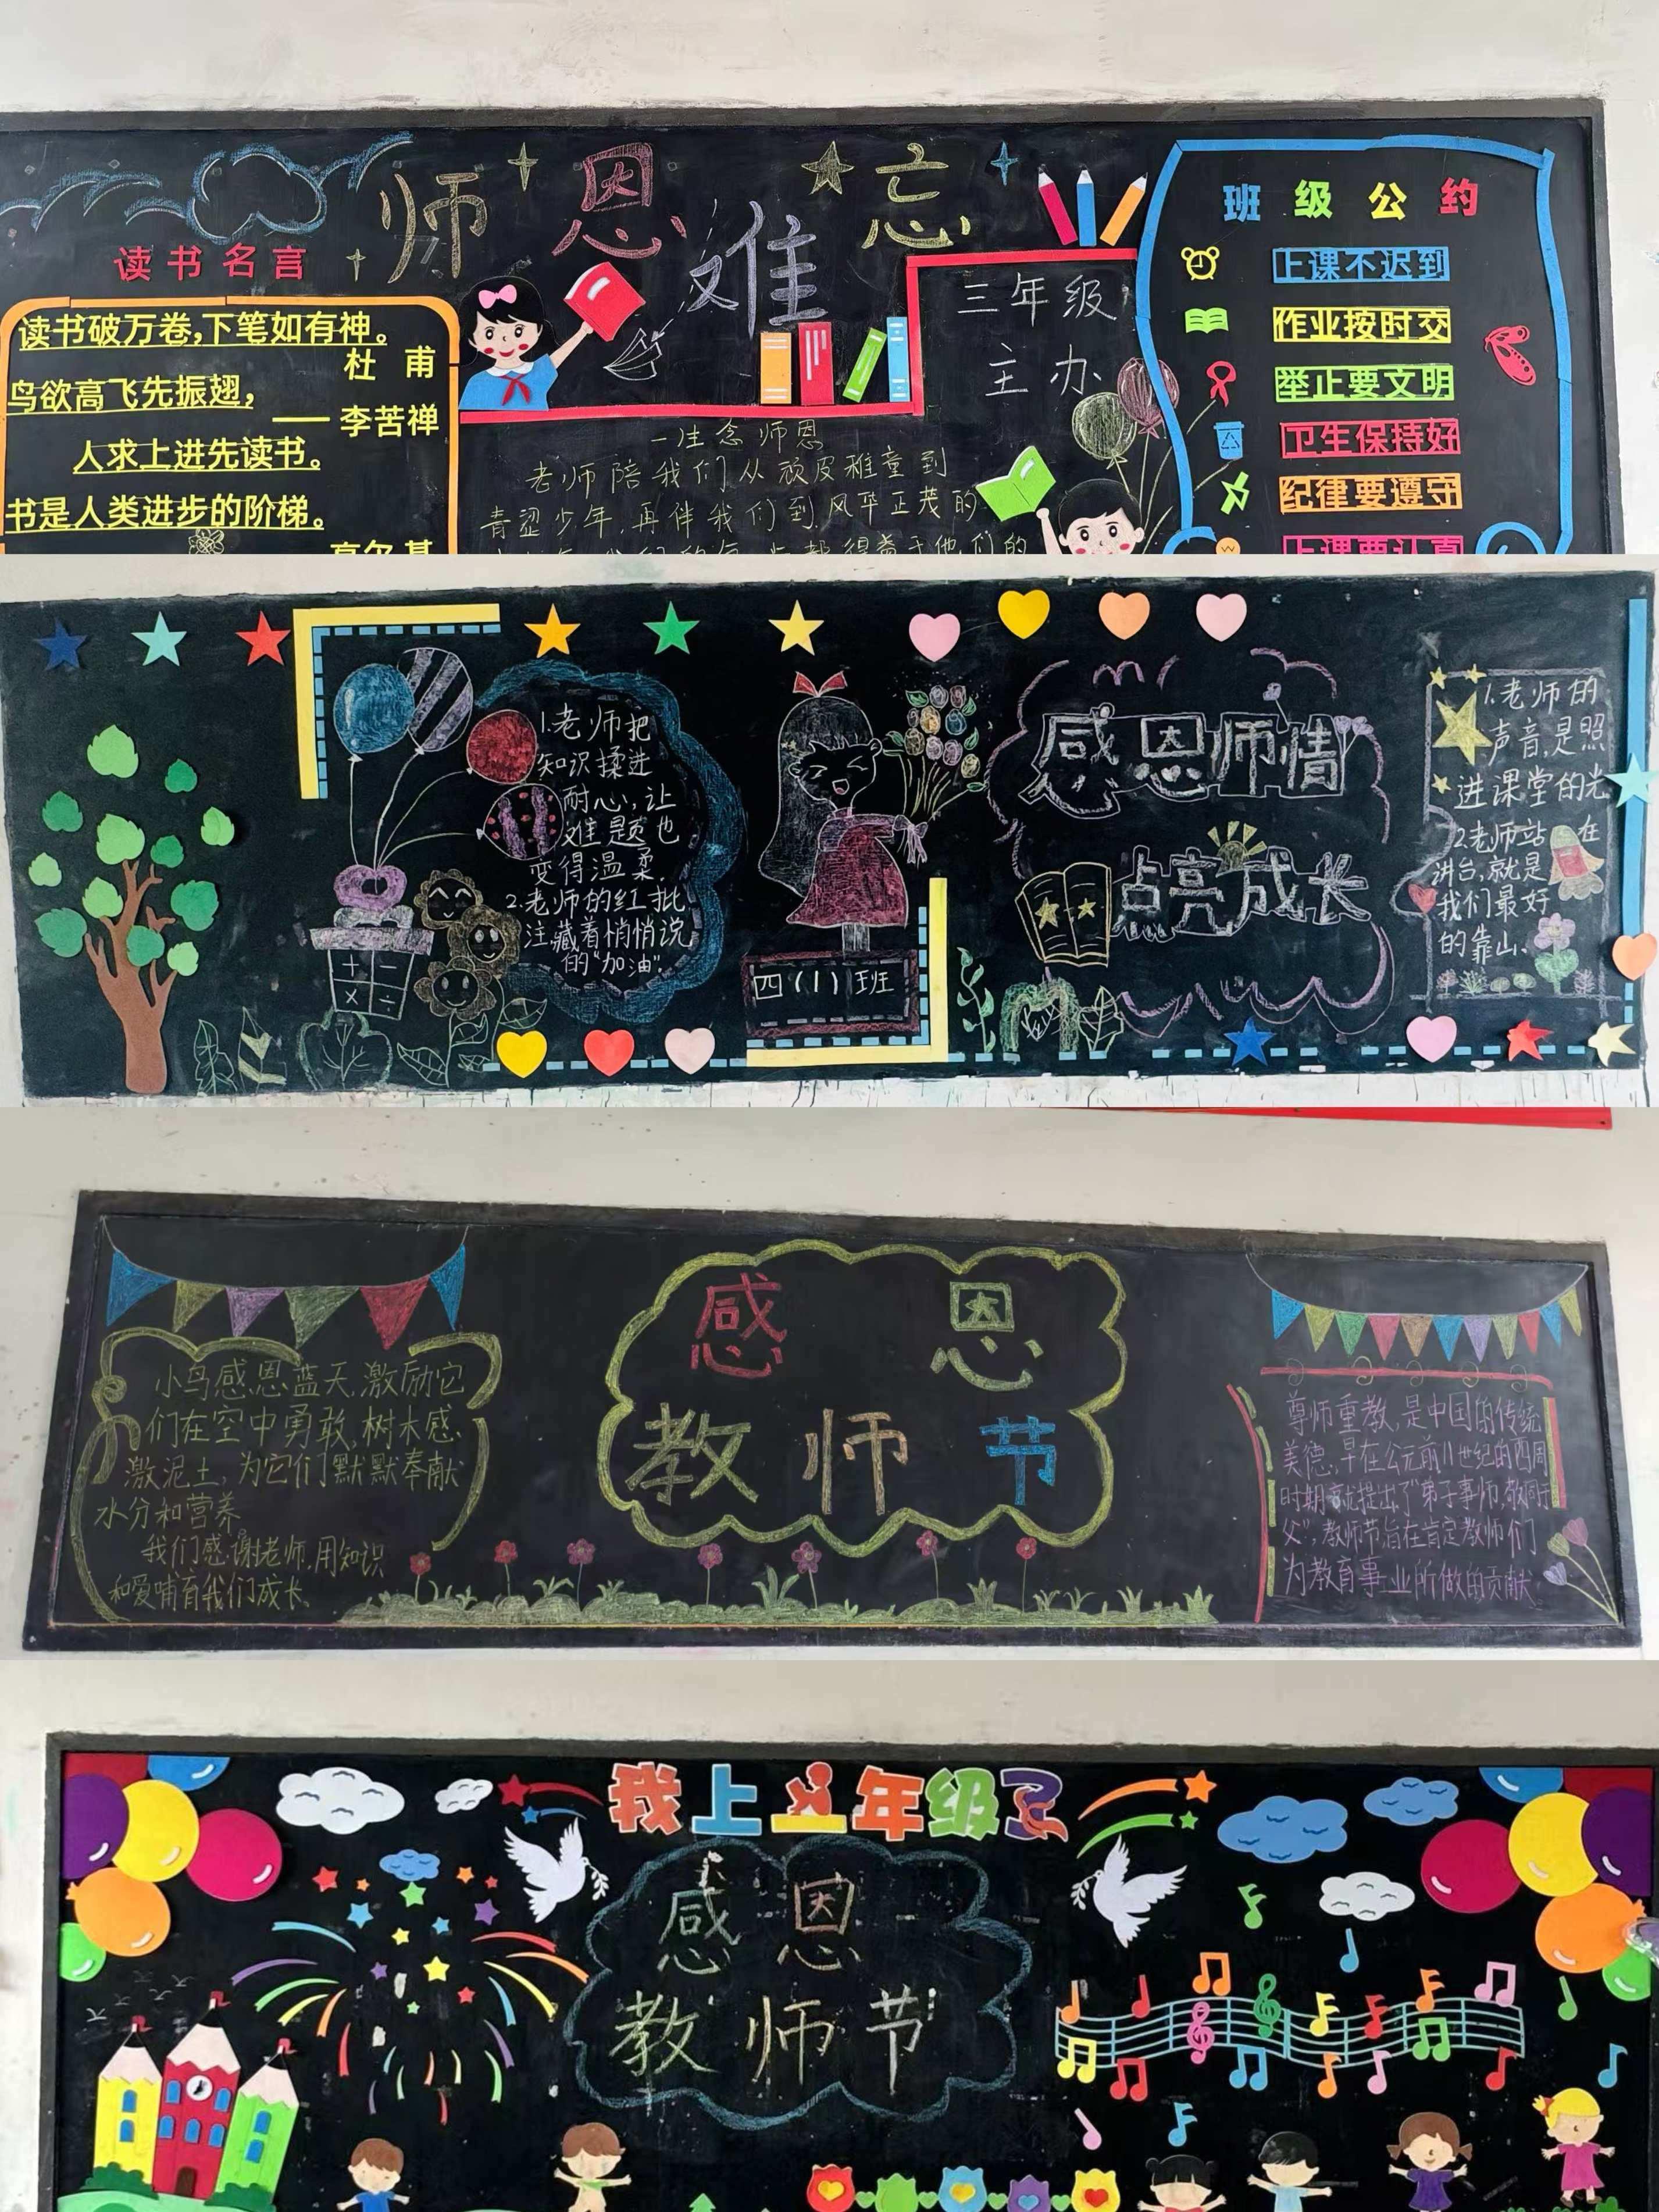 师恩难忘
读书名言
读书破万卷,下笔如有神。
杜 甫
鸟欲高飞先振翅,
—— 李苦禅
人求上进先读书。
书是人类进步的阶梯。
高尔基
三年级
主办
一生念师恩
老师陪我们从顽皮稚童到
青涩少年,再伴我们到风华正茂的
班级公约
上课不迟到
作业按时交
举止要文明
卫生保持好
纪律要遵守
上课要认真
1.老师把
知识揉进
耐心,让
难题也
变得温柔.
2.老师的红批
注藏着悄悄说
的“加油”.
+ −
× ÷
四(1)班
感恩师情
点亮成长
1.老师的
声音,是照
进课堂的光
2.老师站在
讲台,就是
我们最好
的靠山、
小鸟感恩蓝天,激励它
们在空中勇敢,树木感
激泥土,为它们默默奉献
水分和营养
我们感谢老师,用知识
和爱哺育我们成长、
感恩
教师节
尊师重教,是中国的传统
美德,早在公元前11世纪的西周
时期就提出了“弟子事师,敬同于
父”,教师节旨在肯定教师们
为教育事业所做的贡献.
我上一年级了
感恩
教师节